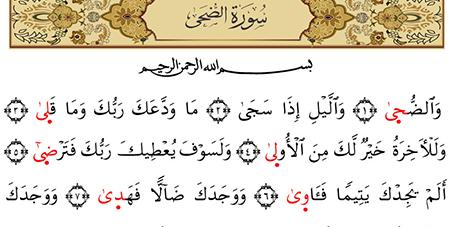 سُورَةُ الضُّحَى
بِسْمِ اللَّهِ الرَّحْمَٰنِ الرَّحِيمِ
وَالضُّحىٰ ﴿١﴾ وَاللَّيْلِ إِذَا سَجَىٰ ﴿٢﴾ مَا وَدَّعَكَ رَبُّكَ وَمَا قَلىٰ ﴿٣﴾
وَلَلْآخِرَةُ خَيْرٌ لَّكَ مِنَ الْأُولىٰ ﴿٤﴾ وَلَسَوْفَ يُعْطِيكَ رَبُّكَ فَتَرْضىٰٓ ﴿٥﴾
أَلَمْ يَجِدْكَ يَتِيمًا فَـَٔاوىٰ ﴿٦﴾ وَوَجَدَكَ ضَآلًّا فَهَدىٰ ﴿٧﴾ وَوَجَدَكَ